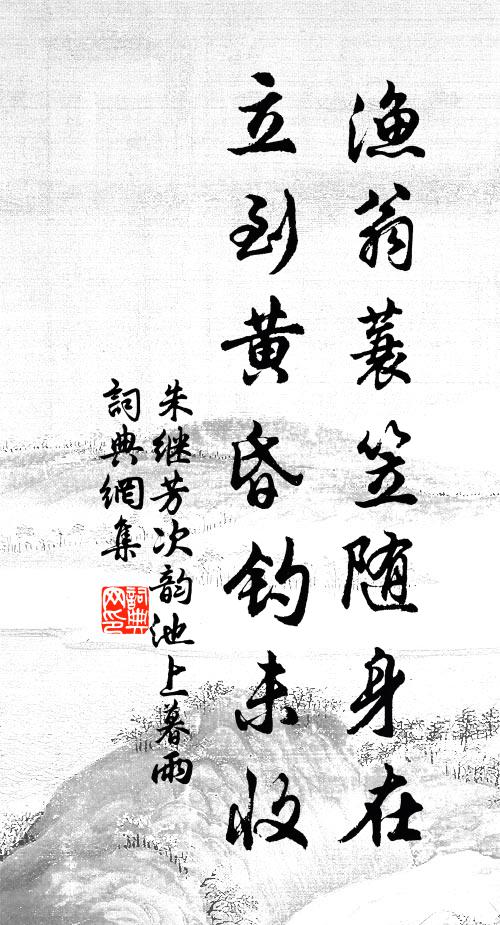 渔翁蓑笠随身在
立到黄昏钓未收
朱继芳次韵池上暮雨
詞典網集
詞典网印